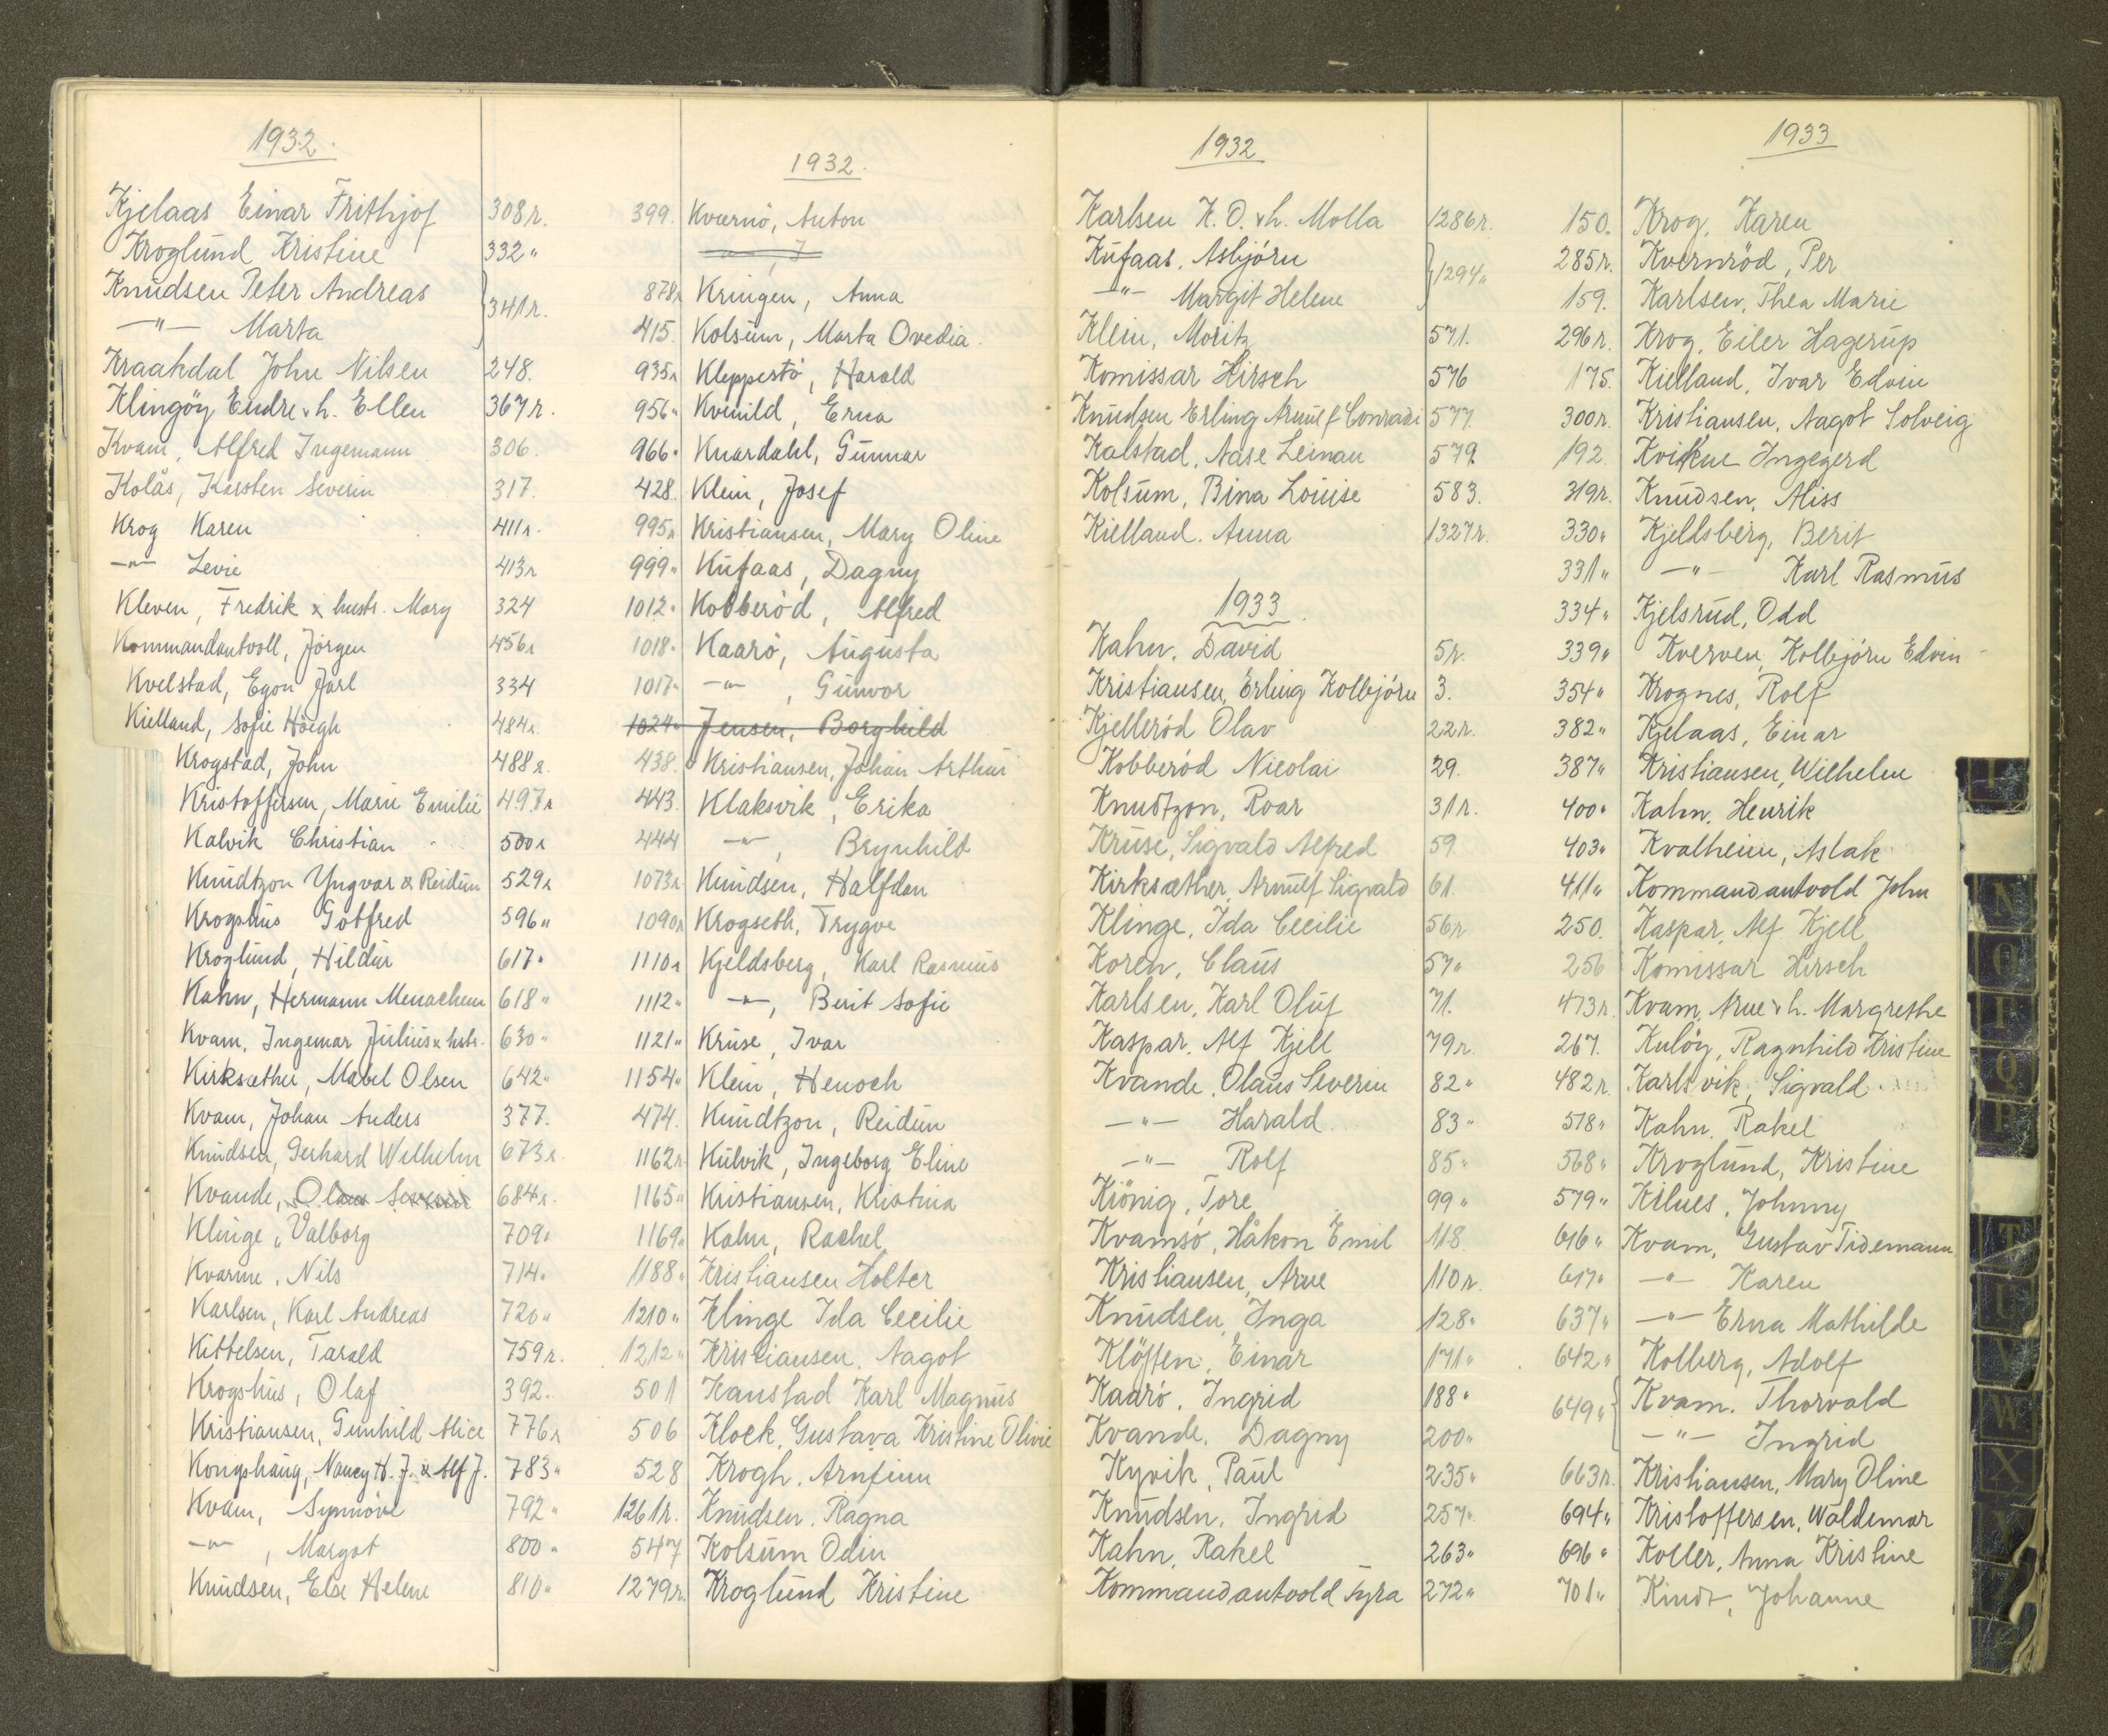 1932.
Kjelaas Einar Frithjof 308 r.
Kroglund Kristine 332 "
Knudsen Peter Andreas 341 r.
—"— Marta
Kraakdal John Nilsen 248.
Klingöy Endre & h. Ellen 367 r.
Kvam, Alfred Ingemann 306.
Kolås, Karsten Severin 317.
Krog Karen 411 r.
—"— Levie 413 r
Kleven, Fredrik & hustr. Mary 324
Kommandantvoll, Jörgen 456 r
Kvelstad, Egon Jarl 334
Kielland, Sofie Höegh 484 r.
Krogstad, John 488 r.
Kristoffersen, Marie Emilie 497 r
Kalvik Christian 500 r
Knudtzon Yngvar & Reidun 529 r
Krogshus Gotfred 596 "
Kroglund, Hildur 617 "
Kahn, Hermann Menachem 618 "
Kvam, Ingemar Julius & hstr. 630 "
Kirksæther, Mabel Olsen 642 "
Kvam, Johan Anders 377.
Knudsen, Gerhard Wilhelm 673 r.
Kvande, Olaus Severin 684 r.
Klinge, Valborg 709 "
Kvarme, Nils 714 "
Karlsen, Karl Andreas 720 "
Kittelsen, Tarald 759 r.
Krogshus, Olaf 392.
Kristiansen, Gunhild Alice 776 r
Kongshaug, Nancy H. J. & Alf J. 783 "
Kvam, Synnöve 792 "
—"—, Margot 800 "
Knudsen, Else Helene 810 "
1932.
399. Kværnö, Anton
—"—, J
878 r Kringen, Anna
415. Kolsum, Marta Ovedia.
935 r Kleppestö, Harold
956 " Kvenild, Erna
966 " Knardahl, Gunnar
428. Klein, Josef
995 r Kristiansen, Mary Oline
999 " Kufaas, Dagny
1012 " Kobberöd, Alfred
1018 " Kaarö, Augusta
1017 " —"—, Gunvor
1024 " Jensen, Borghild
438. Kristiansen, Johan Arthur
443. Klaksvik, Erika
444 —"—, Brynhild
1073 r Knudsen, Halfdan
1090 r Krogseth, Trygve
1110 r Kjeldsberg, Karl Rasmus
1112 " —"—, Berit Sofie
1121 " Kruse, Ivar
1154 " Klein, Henoch
474. Knudtzon, Reidun
1162 r Kulvik, Ingeborg Eline
1165 " Kristiansen, Kristina
1169 " Kahn, Rachel
1188 " Kristiansen Holter
1210 " Klinge Ida Cecilie
1212 " Kristiansen, Aagot
501 Kanstad Karl Magnus
506 Klock, Gustava Kristine Olivie
528 Krogh, Arnfinn
1261 r. Knudsen, Ragna
547 Kolsum Odin
1279 r. Kroglund Kristine
1932
Karlsen K. O. & h. Molla 1286 r.
Kufaas, Asbjörn 1294 "
—"— Margit Helene
Klein, Moritz 571.
Komissar Hirsch 576
Knudsen Erling Arnulf Conradi 577.
Kalstad, Aase Leinan 579.
Kolsum, Bina Louise 583.
Kielland, Anna 1327 r.
1933
Kahn, David 5 r.
Kristiansen, Erling Kolbjörn 3.
Kjelleröd Olav 22 r.
Kobberöd Nicolai 29.
Knudtzon, Roar 31 r.
Kruse, Sigvald Alfred 59
Kirksæther, Arnulf Sigvald 61.
Klinge, Ida Cecilie 56 r.
Koren, Claus 57 "
Karlsen, Karl Oluf 71.
Kaspar, Alf Kjell 79 r.
Kvande, Olaus Severin 82 "
—"— Harald 83 "
—"— Rolf 85 "
Kiönig, Tore 99 "
Kvamsö, Håkon Emil 118
Kristiansen, Arne 110 r.
Knudsen, Inga 128 "
Klöften, Einar 171 "
Kaarö, Ingrid 188 "
Kvande, Dagny 200 "
Kyvik, Paul 235 "
Knudsen, Ingrid 257 "
Kahn, Rakel 263 "
Kommandantvold Tyra 272 "
1933
150. Krog, Karen
285 r. Kvernröd, Per
159. Karlsen, Thea Marie
296 r. Krog, Eiler Hagerup
175. Kielland, Ivar Edvin
300 r. Kristiansen, Aagot Solveig
192 Kvikne Ingegerd
319 r. Knudsen, Aliss
330 " Kjeldsberg, Berit
331 " —"— Karl Rasmus
334 " Kjelsrud, Odd
339 " Kverven, Kolbjörn Edvin
354 " Krognes, Rolf
382 " Kjelaas, Einar
387 " Kristiansen, Wilhelm
400 " Kahn, Henrik
403 " Kvalheim, Aslak
411 " Kommandantvold John
250. Kaspar, Alf Kjell
256 Komissar Hirsch
473 r. Kvam, Arne & h. Margrethe
267. Kulöy, Ragnhild Kristine
482 r. Karlsvik, Sigvald
518 " Kahn, Rakel
568 " Kroglund, Kristine
579 " Kilnes, Johnny
616 " Kvam, Gustav Tidemann
617 " —"— Karen
637 " —"— Erna Mathilde
642 " Kolberg, Adolf
649 " Kvam, Thorvald
—"— Ingrid
663 r. Kristiansen, Mary Oline
694 " Kristoffersen, Waldemar
696 " Koller, Anna Kristine
701 " Kindt, Johanne
L
N
O
P
Q
R
T
U
V
W
X
Y
Z